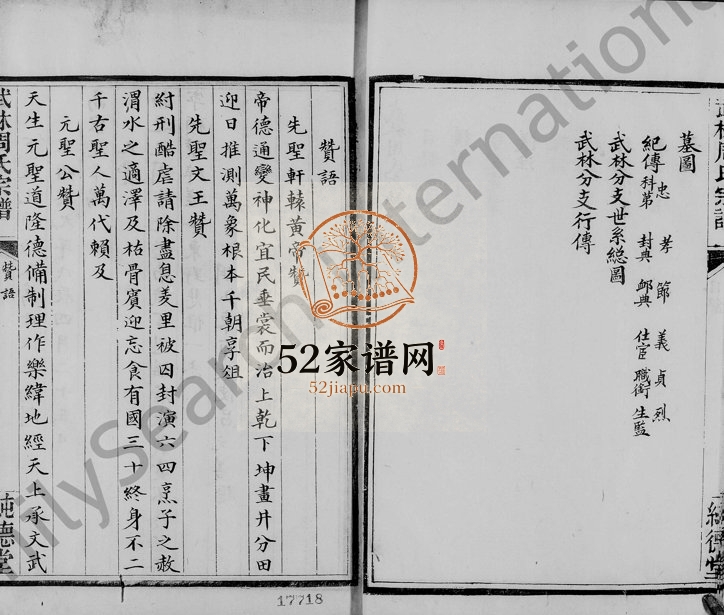 墓圖
紀傳 忠 孝 節 義 貞 烈
科第 封典 邮典 仕宦 職銜 生監
武林分支世系總圖
武林分支行傳
純德堂
贊語
先聖軒轅黃帝贊
帝德通變神化宜民垂裳而治上乾下坤畫井分田
迎日推測萬象根本千朝享俎
先聖文王贊
紂刑酷虐請除盡息羑里被囚封演六四烹子之赦
渭水之適澤及枯骨賓迎忘食有國三十終身不二
千古聖人萬代賴及
元聖公贊
天生元聖道隆德備制理作樂緯地經天上承文武
武林周氏宗譜
贊語
純德堂
52家谱网
52jiapu.com
17718